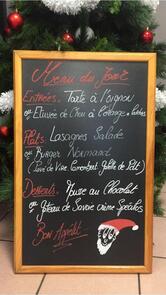 Menu du Jour
Entrées: Tarte à l'oignon
ou Elixée de Chou à l'Orange,
Plats: Lasagnes Salade
ou Burger Normand
(Camembert, de )
Desserts: Mousse au Chocolat
ou Gâteau de Savoie crème Spéculos
Bon Appétit